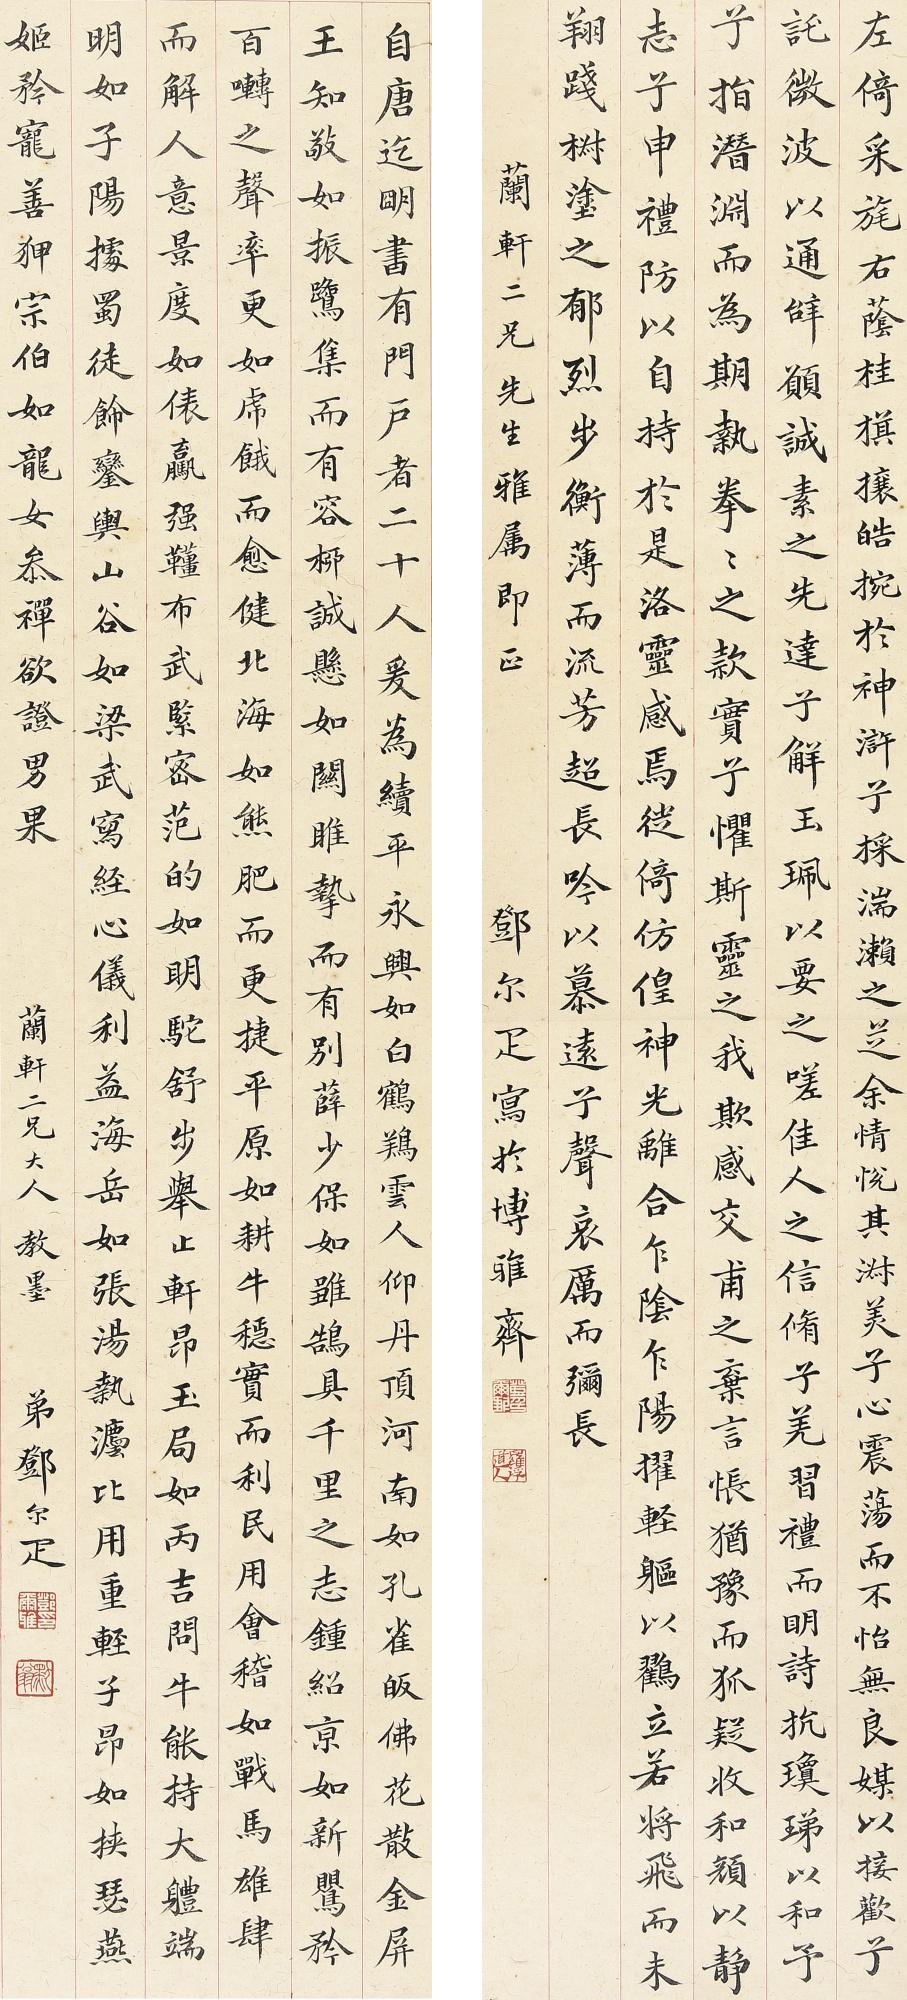 左倚采旄右蔭桂旗攘皓捥於神滸兮採湍瀨之芝余情悅其淑美兮心震蕩而不怡無良媒以接歡兮
託微波以通辭願誠素之先達兮解玉珮以要之嗟佳人之信脩兮羌習禮而明詩抗瓊珶以和予
兮指潛淵而為期執拳〻之款實兮懼斯靈之我欺感交甫之棄言悵猶豫而狐疑收和顏以静
志兮申禮防以自持於是洛靈感焉徙倚仿偟神光離合乍陰乍陽擢軽軀以鸖立若将飛而未
翔踐椒塗之郁烈步衡薄而流芳超長吟以慕遠兮聲哀厲而彌長
蘭軒二兄先生雅属即正 鄧尔疋寫於博雅齋
自唐迄明書有門戶者二十人爰為續平永興如白鶴翔雲人仰丹頂河南如孔雀皈佛花散金屏
王知敬如振鷺集而有容栁誠懸如關雎摯而有別薛少保如雖鵠具千里之志鍾紹京如新鸎矜
百囀之聲率更如虎餓而愈健北海如熊肥而更捷平原如耕牛穩實而利民用會稽如戰馬雄肆
而解人意景度如俵驘强韁布武緊密范的如明駝舒步舉止軒昂玉局如丙吉問牛能持大軆端
明如子陽據蜀徒飾鑾輿山谷如梁武寫経心儀利益海岳如張湯執灋比用重輊子昂如挾瑟燕
姬矜寵善狎宗伯如龍女叅禪欲證男果 蘭軒二兄大人教墨 弟鄧尔疋